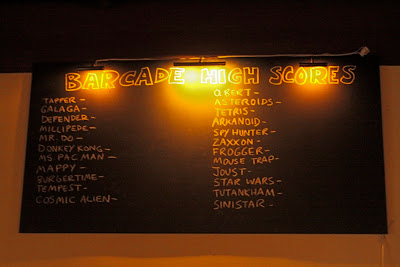 BARCADE HIGH SCORES
TAPPER-
GALAGA-
DEFENDER-
MILLIPEDE-
MR. DO-
DONKEY KONG-
MS PAC MAN-
MAPPY-
BURGERTIME-
TEMPEST-
COSMIC ALIEN-
QBERT-
ASTEROIDS-
TETRIS-
ARKANOID-
SPY HUNTER-
ZAXXON-
FROGGER-
MOUSE TRAP-
JOUST-
STAR WARS-
TUTANKHAM-
SINISTAR-